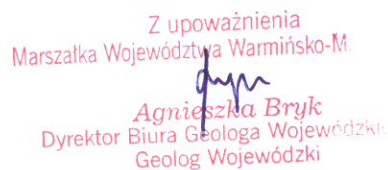 Z upoważnienia
Marszałka Województwa Warmińsko-M
Agnieszka Bryk
Dyrektor Biura Geologa Wojewódzki
Geolog Wojewódzki